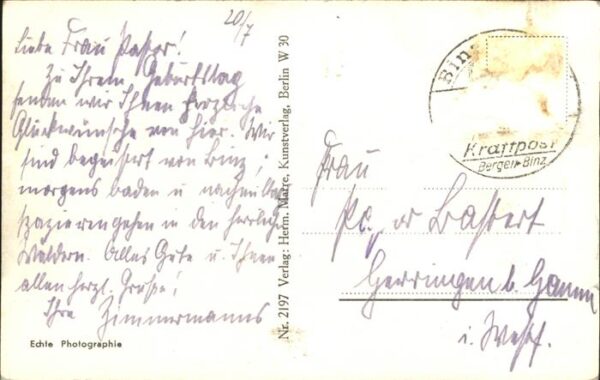 20/7
Liebe Frau Pastor!
Zu Ihrem Geburtstag
senden wir Ihnen herzliche
Glückwünsche von hier. Wir
sind begeistert von Binz,
morgens baden u nachm.
spazierengehen in den herrlichen
Wäldern. Alles Gute u. Ihnen
allen herzl. Grüße!
Ihre Zimmermanns
Echte Photographie
Nr. 2197 Verlag: Herm. Marre, Kunstverlag, Berlin W 30
Binz
Kraftpost
Bergen-Binz
Frau
Bastert
Gerringen b. Hamm
i. Westf.